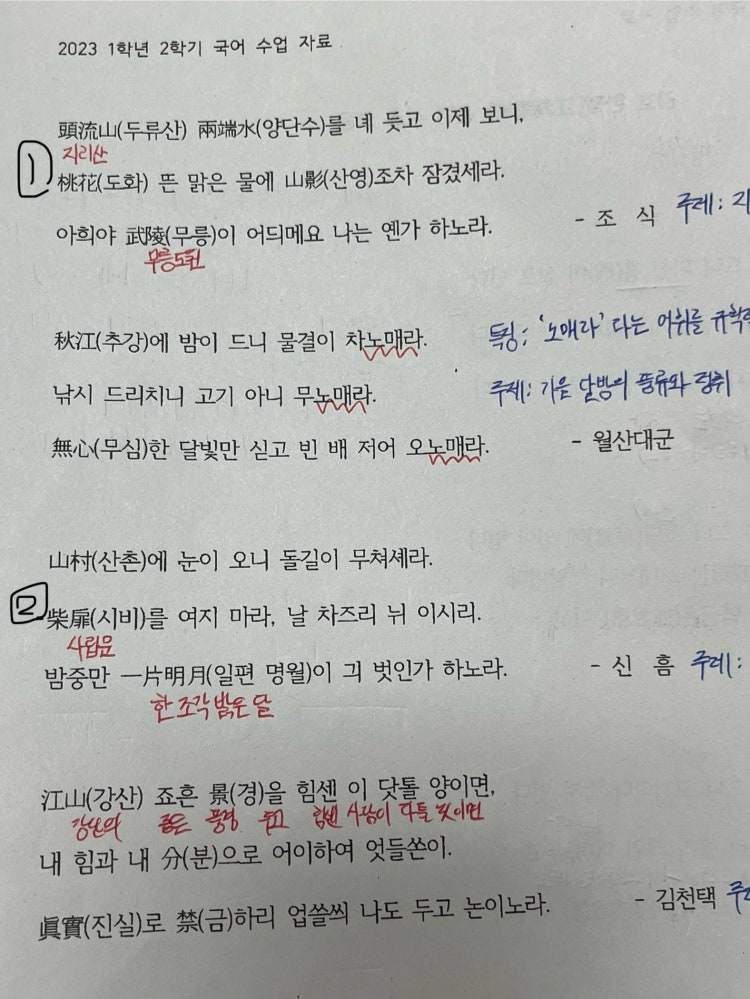 2023 1학년 2학기 국어 수업 자료
頭流山(두류산) 兩端水(양단수)를 녜 듯고 이제 보니,
1
지리산
桃花(도화) 뜬 맑은 물에 山影(산영)조차 잠겼세라.
아희야 武陵(무릉)이 어듸메요 나는 옌가 하노라.
- 조 식 주제: 지
무릉도원
秋江(추강)에 밤이 드니 물결이 차노매라.
특징: '노매라' 다는 어휘를 규학적
낚시 드리치니 고기 아니 무노매라.
주제: 가을 달밤의 풍류와 정취
無心(무심)한 달빛만 싣고 빈 배 저어 오노매라.
- 월산대군
山村(산촌)에 눈이 오니 돌길이 무쳐셰라.
2
柴扉(시비)를 여지 마라, 날 차즈리 뉘 이시리.
사립문
밤중만 一片明月(일편 명월)이 긔 벗인가 하노라.
- 신 흠 주제:
한 조각 밝은 달
江山(강산) 죠흔 景(경)을 힘센 이 닷톨 양이면,
강산의 좋은 풍경 두고 힘센 사람이 다툴 것이면
내 힘과 내 分(분)으로 어이하여 엇들쏜이.
眞實(진실)로 禁(금)하리 업쓸씌 나도 두고 논이노라.
- 김천택 주